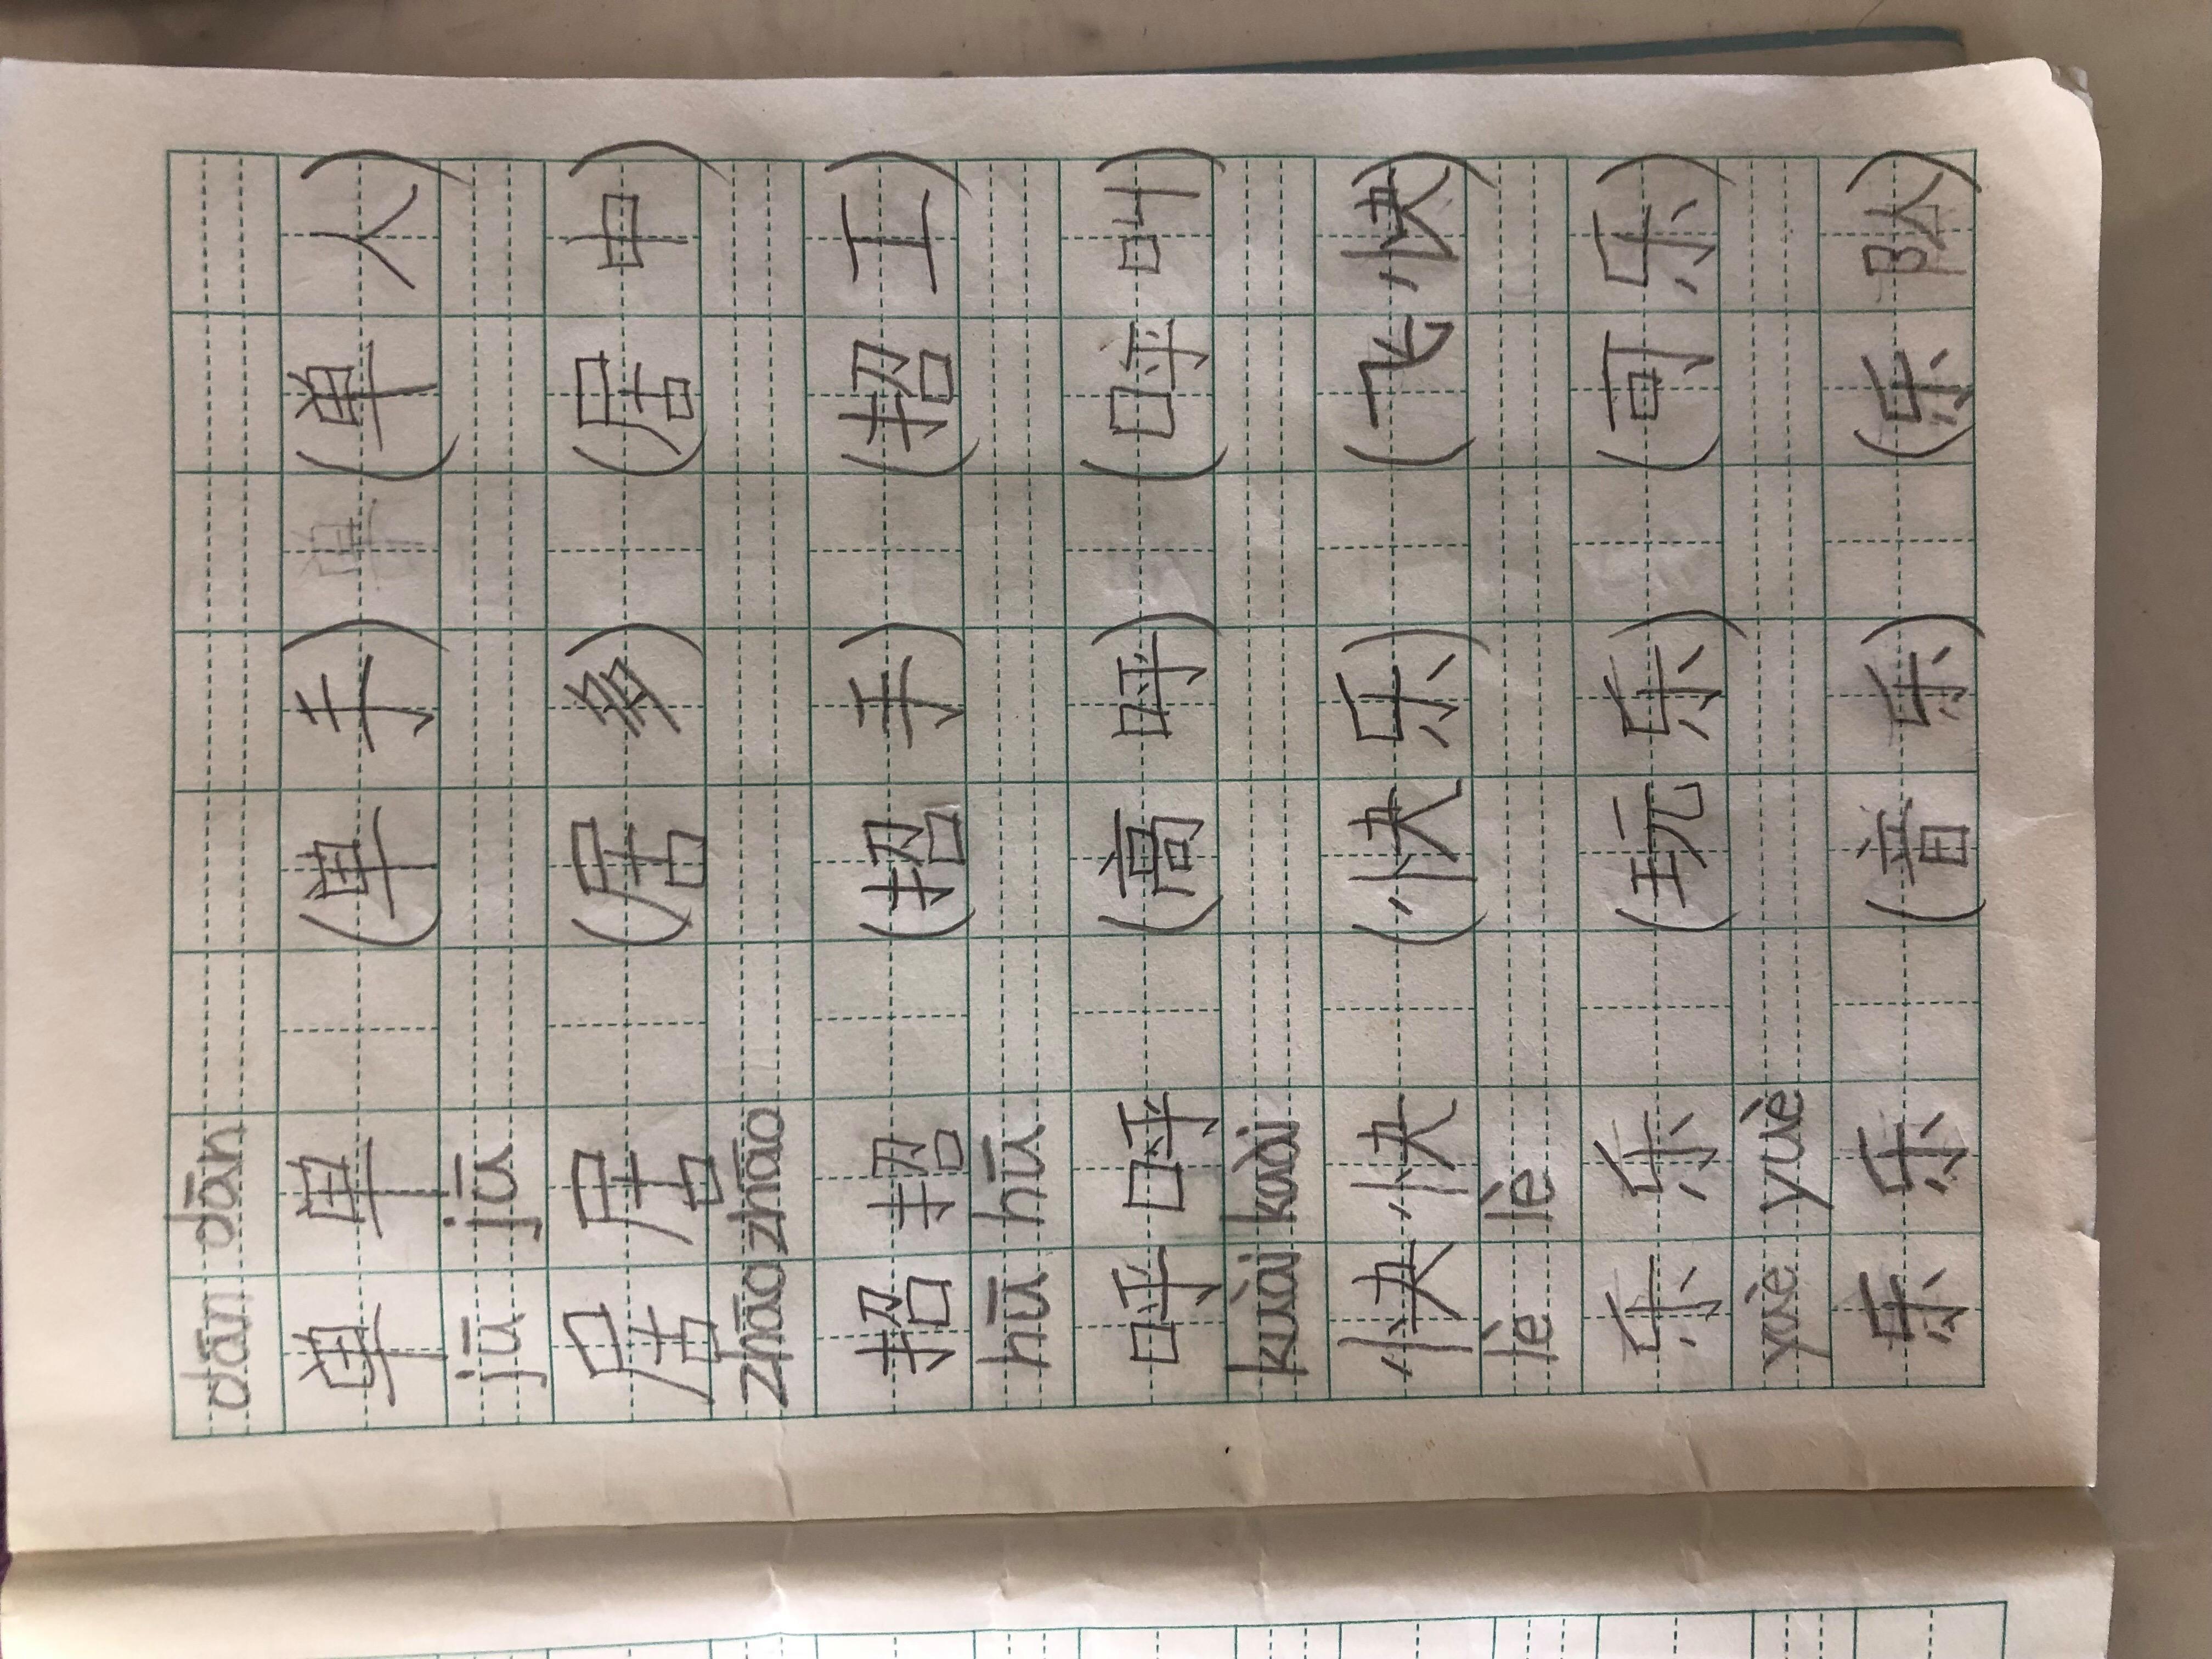 dān dān
单 单 (单手) (单人)
jū jū
居 居 (居多) (居中)
zhāo zhāo
招 招 (招手) (招工)
hū hū
呼 呼 (高呼) (呼叫)
kuài kuài
快 快 (快乐) (飞快)
lè lè
乐 乐 (玩乐) (可乐)
yuè yuè
乐 乐 (音乐) (乐队)